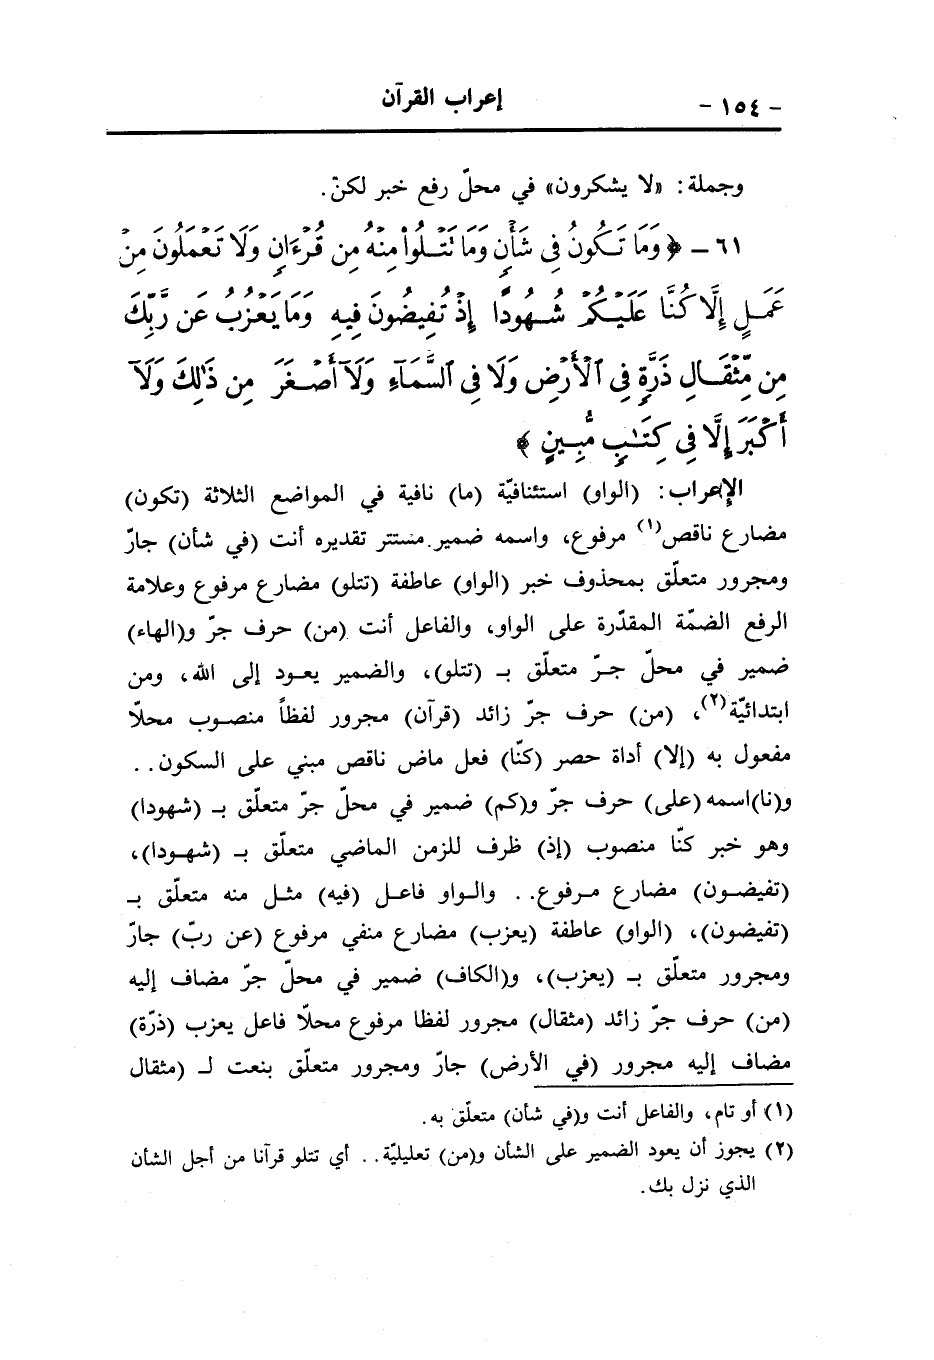 - ١٥٤ - إعراب القرآن
وجملة: «لا يشكرون» في محلّ رفع خبر لكنّ.
٦١ - ﴿ وَمَا تَكُونُ فِى شَأْنٍ وَمَا تَتْلُوا۟ مِنْهُ مِن قُرْءَانٍ وَلَا تَعْمَلُونَ مِنْ
عَمَلٍ إِلَّا كُنَّا عَلَيْكُمْ شُهُودًا إِذْ تُفِيضُونَ فِيهِ وَمَا يَعْزُبُ عَن رَّبِّكَ
مِن مِّثْقَالِ ذَرَّةٍ فِى ٱلْأَرْضِ وَلَا فِى ٱلسَّمَآءِ وَلَآ أَصْغَرَ مِن ذَٰلِكَ وَلَآ
أَكْبَرَ إِلَّا فِى كِتَٰبٍ مُّبِينٍ ﴾
الإعراب: (الواو) استئنافيّة (ما) نافية في المواضع الثلاثة (تكون)
مضارع ناقص(١) مرفوع، واسمه ضمير مستتر تقديره أنت (في شأن) جارّ
ومجرور متعلّق بمحذوف خبر (الواو) عاطفة (تتلو) مضارع مرفوع وعلامة
الرفع الضمّة المقدّرة على الواو، والفاعل أنت (من) حرف جرّ و(الهاء)
ضمير في محلّ جرّ متعلّق بـ (تتلو)، والضمير يعود إلى الله، ومن
ابتدائيّة(٢)، (من) حرف جرّ زائد (قرآن) مجرور لفظاً منصوب محلّا
مفعول به (إلا) أداة حصر (كنّا) فعل ماض ناقص مبني على السكون..
و(نا)اسمه (على) حرف جرّ و(كم) ضمير في محلّ جرّ متعلّق بـ (شهودا)
وهو خبر كنّا منصوب (إذ) ظرف للزمن الماضي متعلّق بـ (شهودا)،
(تفيضون) مضارع مرفوع.. والواو فاعل (فيه) مثل منه متعلّق بـ
(تفيضون)، (الواو) عاطفة (يعزب) مضارع منفي مرفوع (عن ربّ) جارّ
ومجرور متعلّق بـ (يعزب)، و(الكاف) ضمير في محلّ جرّ مضاف إليه
(من) حرف جرّ زائد (مثقال) مجرور لفظا مرفوع محلّا فاعل يعزب (ذرّة)
مضاف إليه مجرور (في الأرض) جارّ ومجرور متعلّق بنعت لـ (مثقال
(١) أو تام، والفاعل أنت و(في شأن) متعلّق به.
(٢) يجوز أن يعود الضمير على الشأن و(من) تعليليّة.. أي تتلو قرآنا من أجل الشأن
الذي نزل بك.